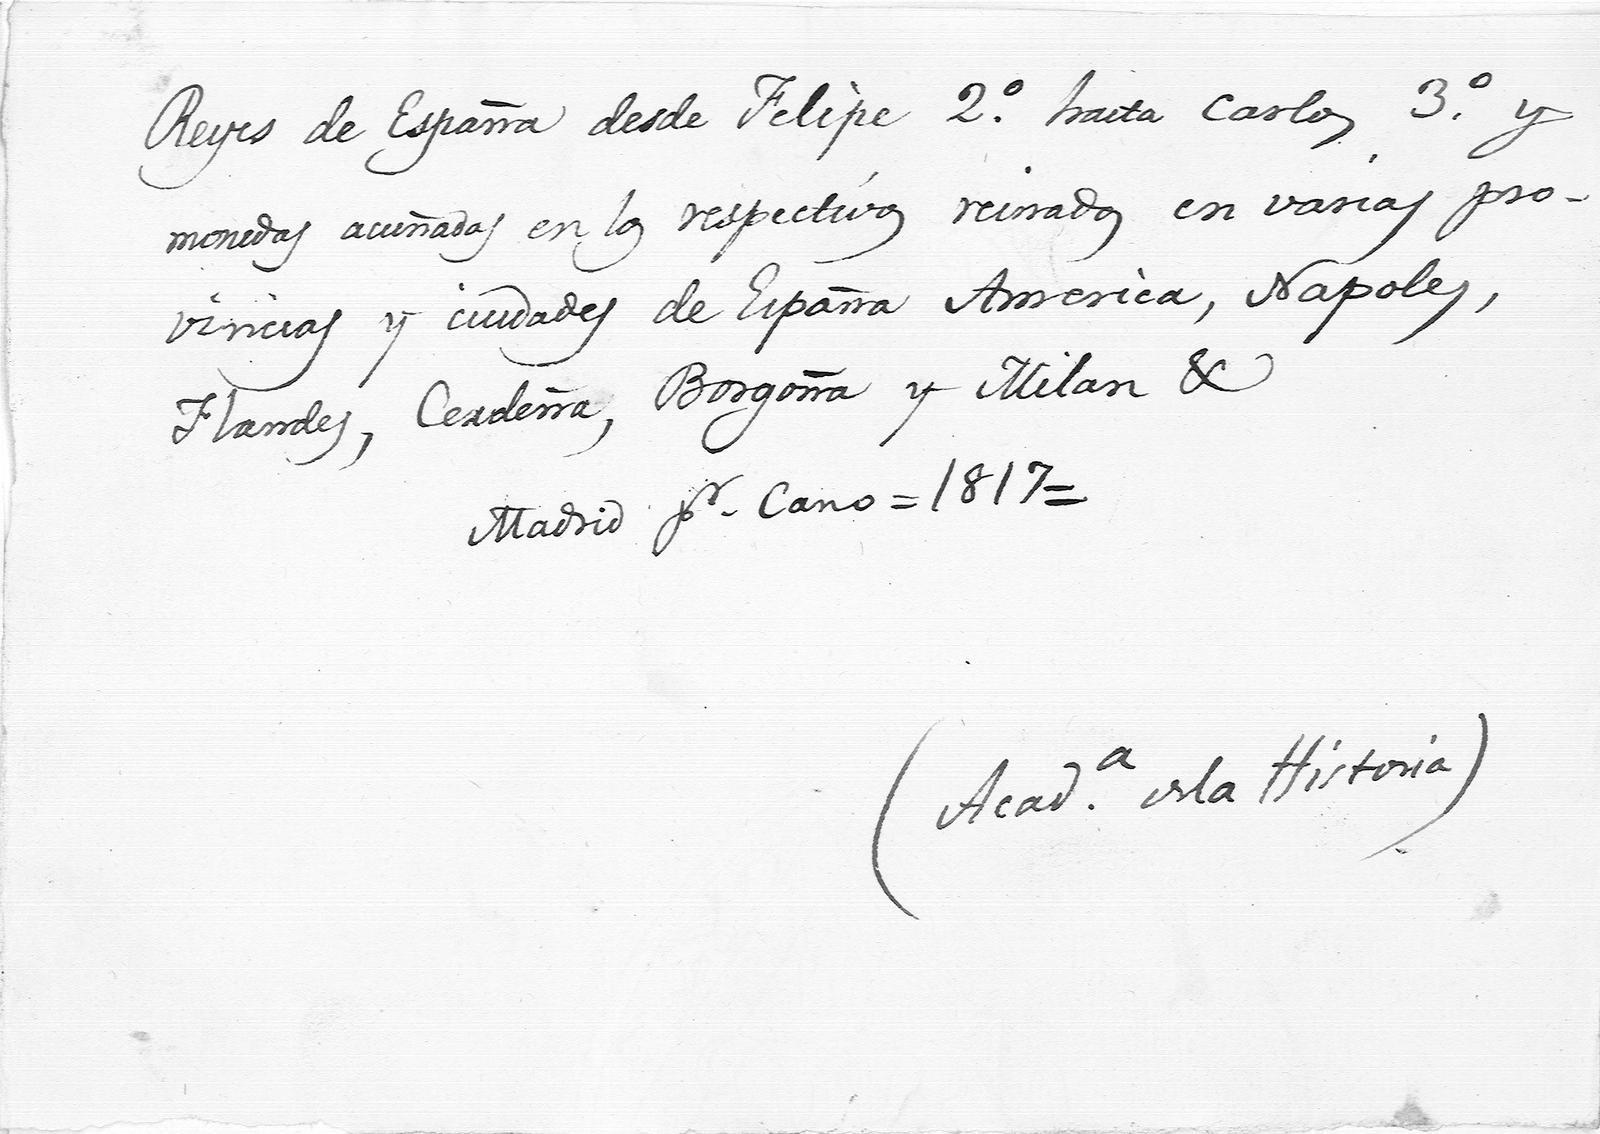 Reyes de España desde Felipe 2.º hasta Carlos 3.º y
monedas acuñadas en los respectivos reinados en varias pro-
vincias y ciudades de España America, Napoles,
Flandes, Cerdeña, Borgoña y Milan &
Madrid pr. Cano = 1817 =
(Acad.a de la Historia)